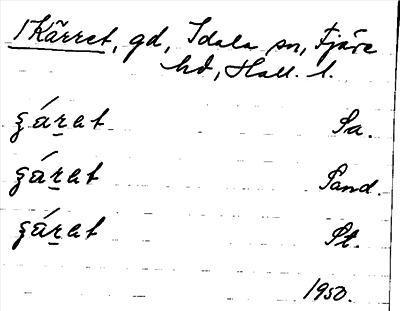 1 Kärret, gd, Idala sn, Fjäre
hd, Hall. l.
ʒárat Sa.
ʒárat Sand.
ʒárat St.
1950.